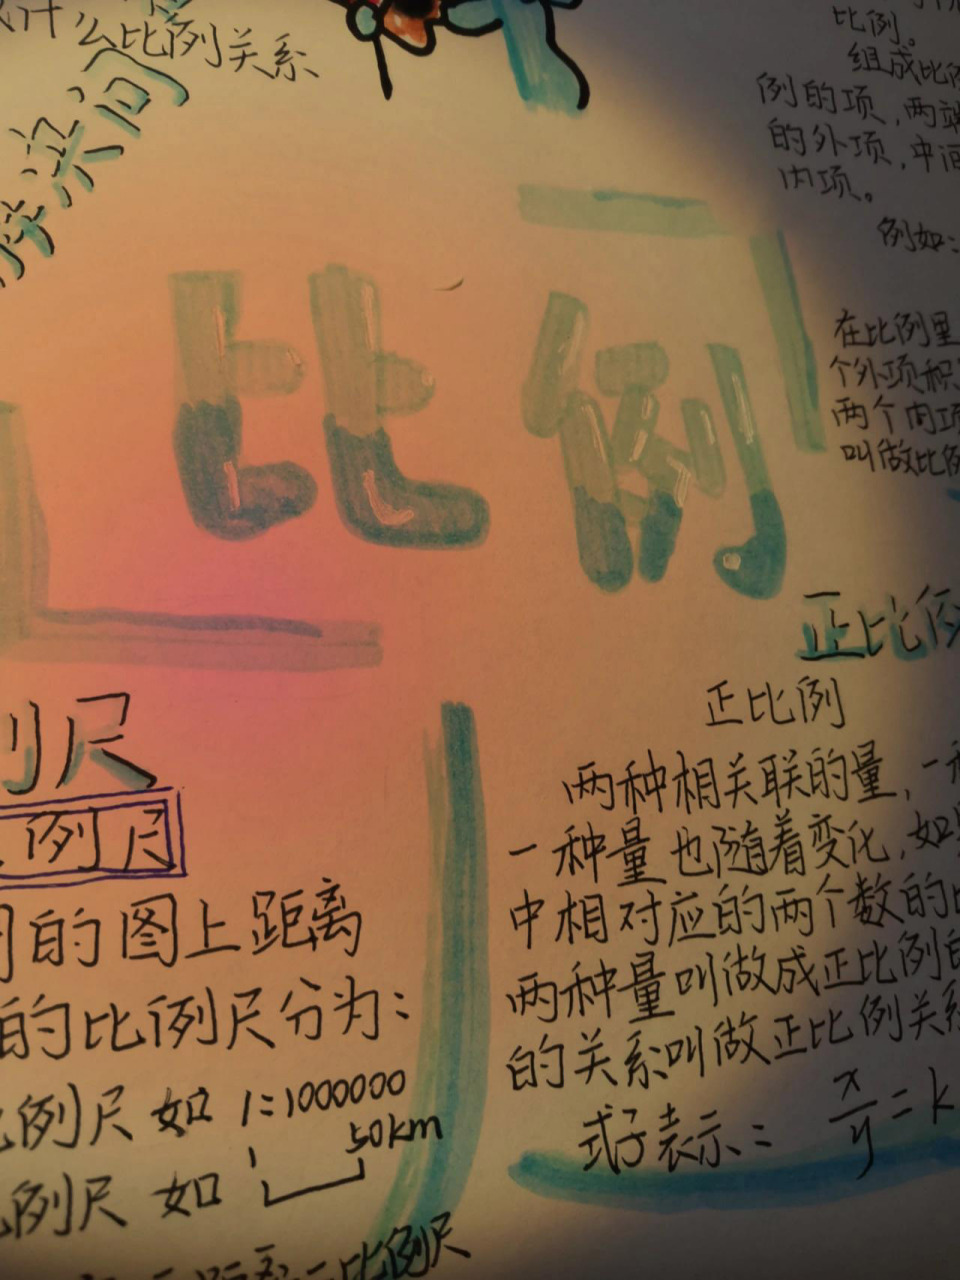 么比例关系
比例。
组成比
例的项,两
的外项,中间
内项。
例如:
比例
在比例里
个外项积
两个内项
叫做比例
正比例
例尺
例尺
的图上距离
的比例尺分为:
比例尺 如 1:1000000
50km
例尺 如
比例尺
正比例
两种相关联的量,一
一种量也随着变化,如
中相对应的两个数的
两种量叫做成正比例的
的关系叫做正比例关系
式子表示: x/y=k